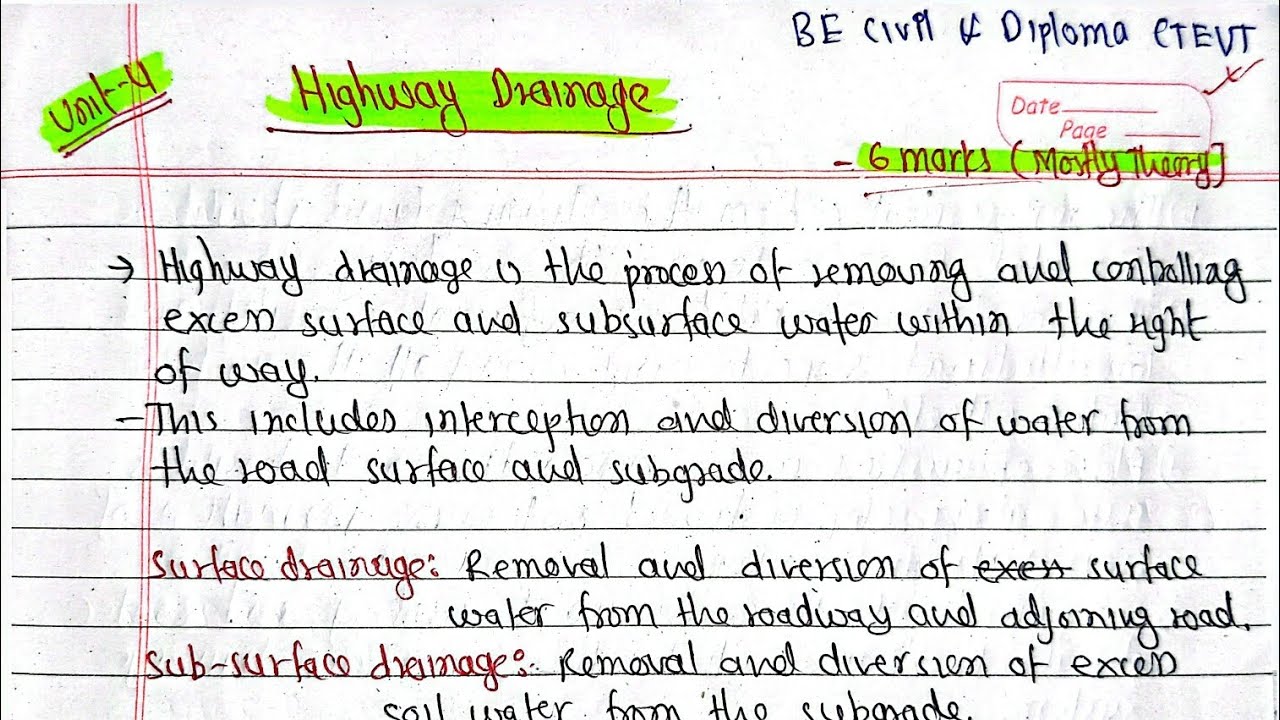 BE Civil & Diploma CTEVT
Unit-4
Highway Drainage
Date
Page
- 6 marks (Mostly Theory]
→ Highway drainage is the process of removing and controlling
excess surface and subsurface water within the right
of way.
- This includes interception and diversion of water from
the road surface and subgrade.
Surface drainage: Removal and diversion of excess surface
water from the roadway and adjoining road.
Sub-surface drainage: Removal and diversion of excess
soil water from the subgrade.